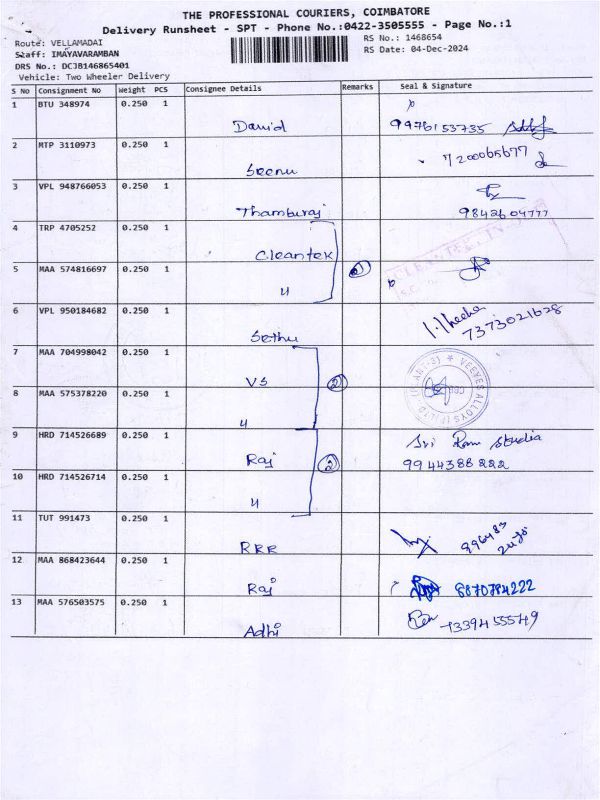 THE PROFESSIONAL COURIERS, COIMBATORE
Delivery Runsheet - SPT - Phone No.:0422-3505555 - Page No.:1
Route: VELLAMADAI
Staff: IMAYAVARAMBAN
DRS No.: DCJB146865401
Vehicle: Two Wheeler Delivery
RS No.: 1468654
RS Date: 04-Dec-2024
S No Consignment No Weight PCS Consignee Details Remarks Seal & Signature
1 BTU 348974 0.250 1
David 9976153735
2 MTP 3110973 0.250 1
Seenu 7200065677
3 VPL 948766053 0.250 1
Thamburaj 9842604777
4 TRP 4705252 0.250 1
Cleantek
5 MAA 574816697 0.250 1
4
6 VPL 950184682 0.250 1
Sethu 7373021628
7 MAA 704998042 0.250 1
VS 2 VEEYES ALLOYS
8 MAA 575378220 0.250 1
4
9 HRD 714526689 0.250 1
Raj 2 Sri Ram Studia
9944388222
10 HRD 714526714 0.250 1
4
11 TUT 991473 0.250 1
RRR
12 MAA 868423644 0.250 1
Raj 8870784222
13 MAA 576503575 0.250 1
Adhi